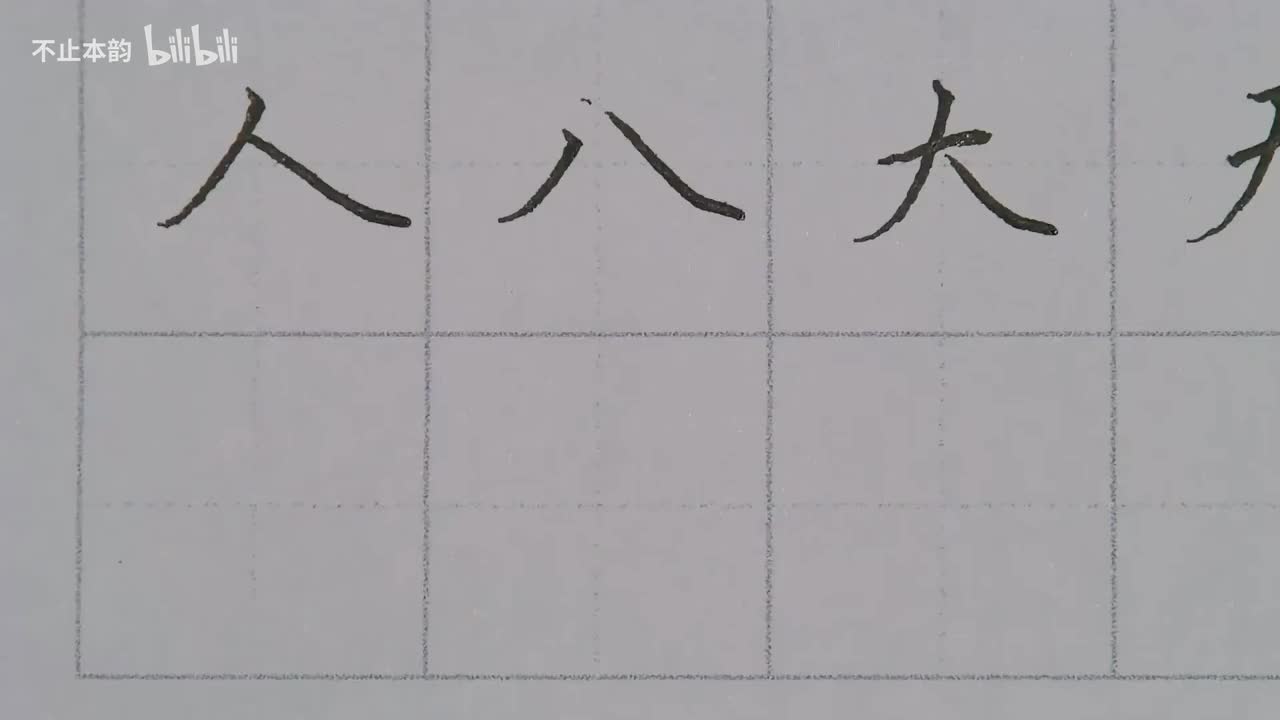 不止本韵 bilibili
人 八 大